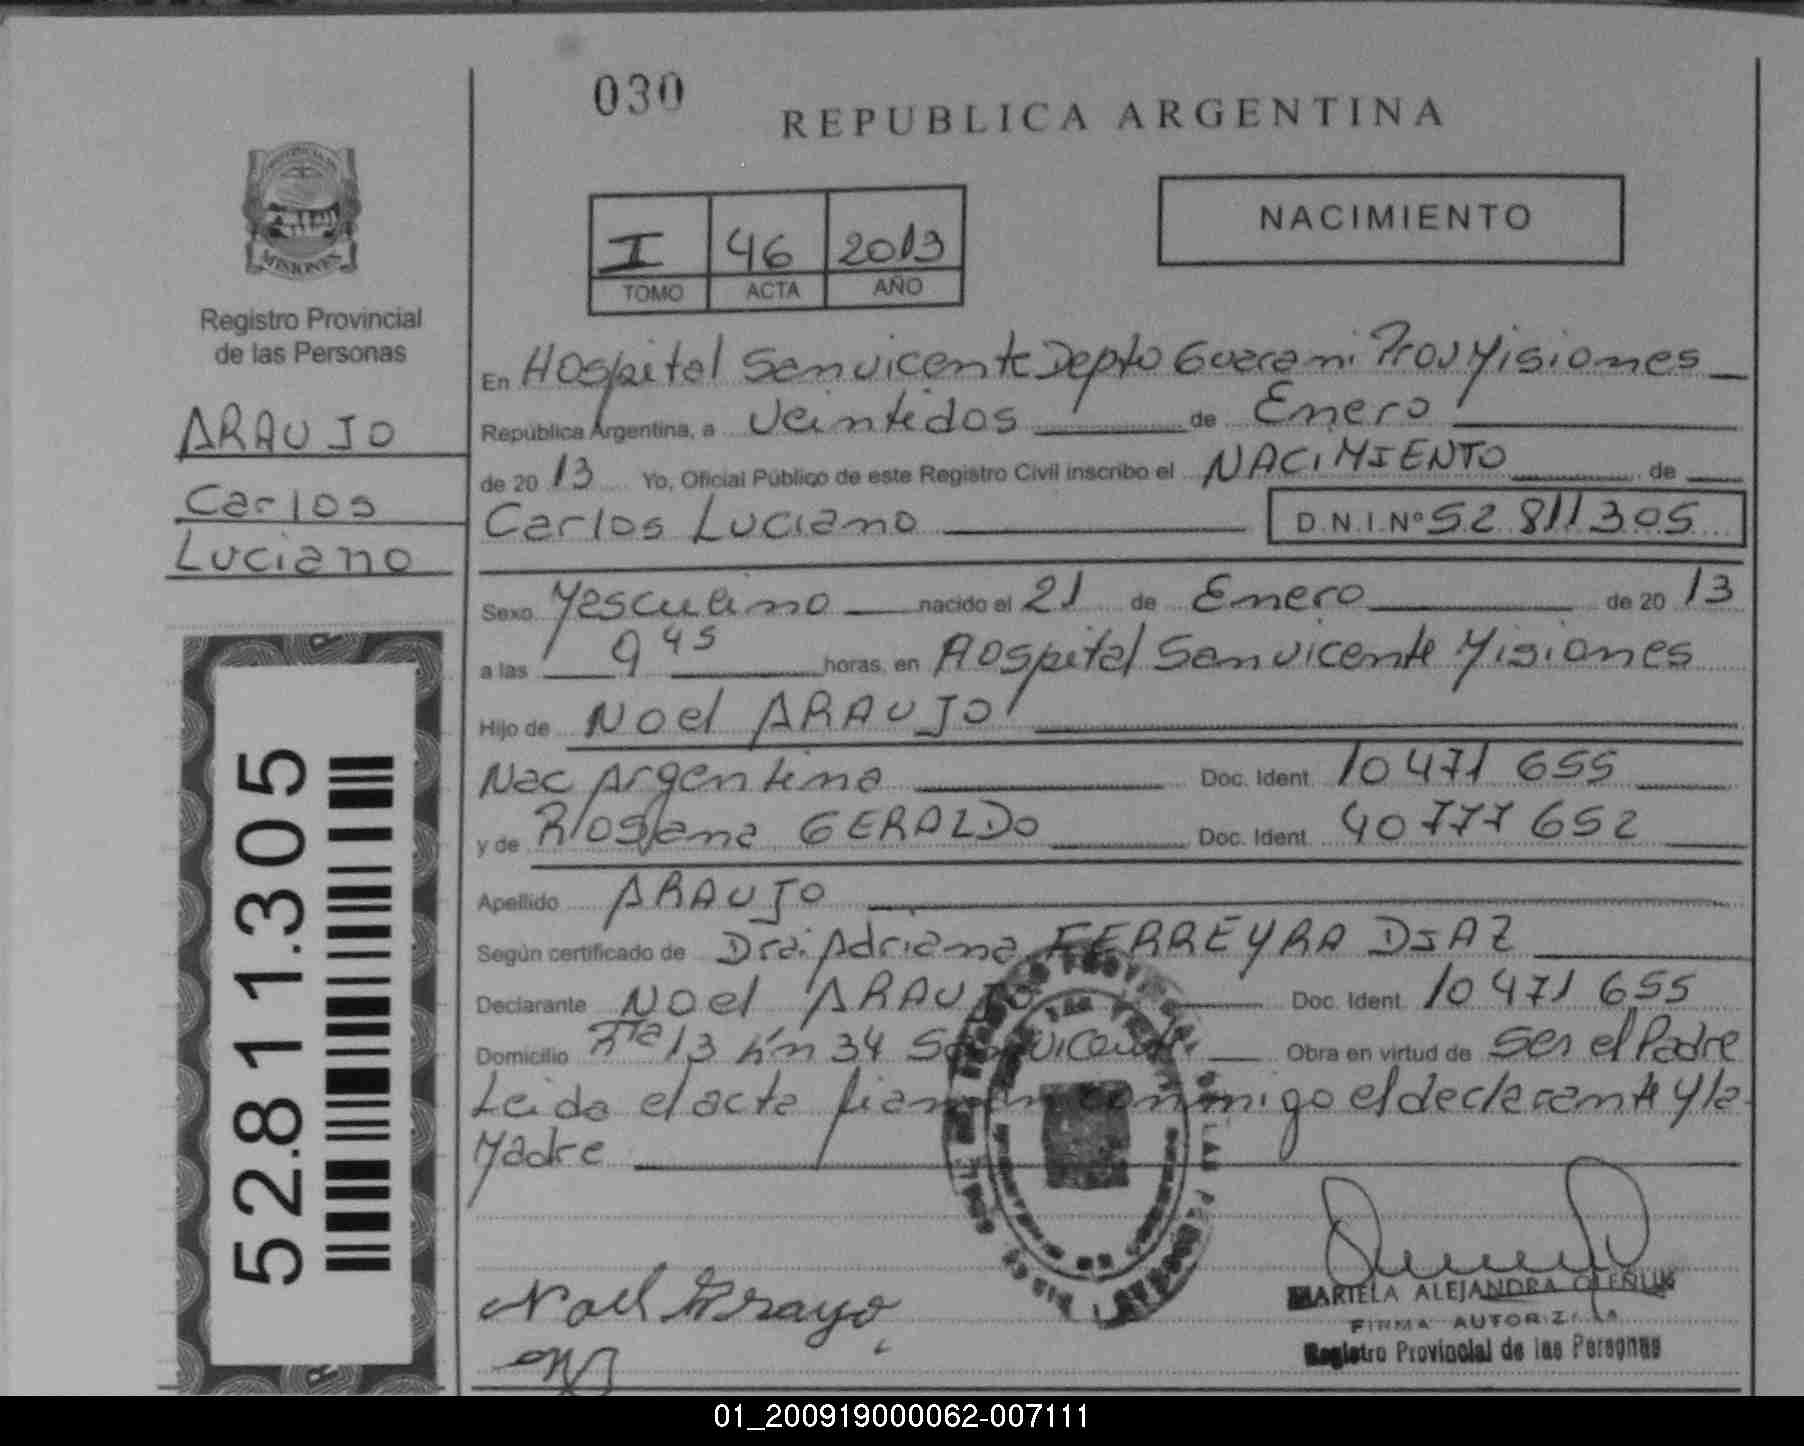 030
REPUBLICA ARGENTINA
NACIMIENTO
I 46 2013
TOMO ACTA AÑO
MISIONES
Registro Provincial
de las Personas
ARAUJO
Carlos
Luciano
52.811.305
En Hospital San vicente Depto Guarani Prov Misiones
República Argentina, a veintidos de Enero
de 20 13 Yo, Oficial Público de este Registro Civil inscribo el NACIMIENTO de
Carlos Luciano D.N.I.Nº 52 811305
Sexo Masculino nacido el 21 de Enero de 20 13
a las 9 45 horas, en Hospital San vicente Misiones
Hijo de Noel ARAUJO
Nac Argentina Doc. Ident. 10 471 655
y de Rosana GERALDO Doc. Ident. 40777 652
Apellido ARAUJO
Según certificado de Dra. Adriana FERREYRA DIAZ
Declarante Noel ARAUJO Doc. Ident. 10 471 655
Domicilio Rta 13 Km 34 San vicente Obra en virtud de ser el Padre
Leida el acta firman conmigo el declarante y la
Madre
Noel Arayo
MARIELA ALEJANDRA OLEÑUK
FIRMA AUTORIZADA
Registro Provincial de las Personas
01_200919000062-007111